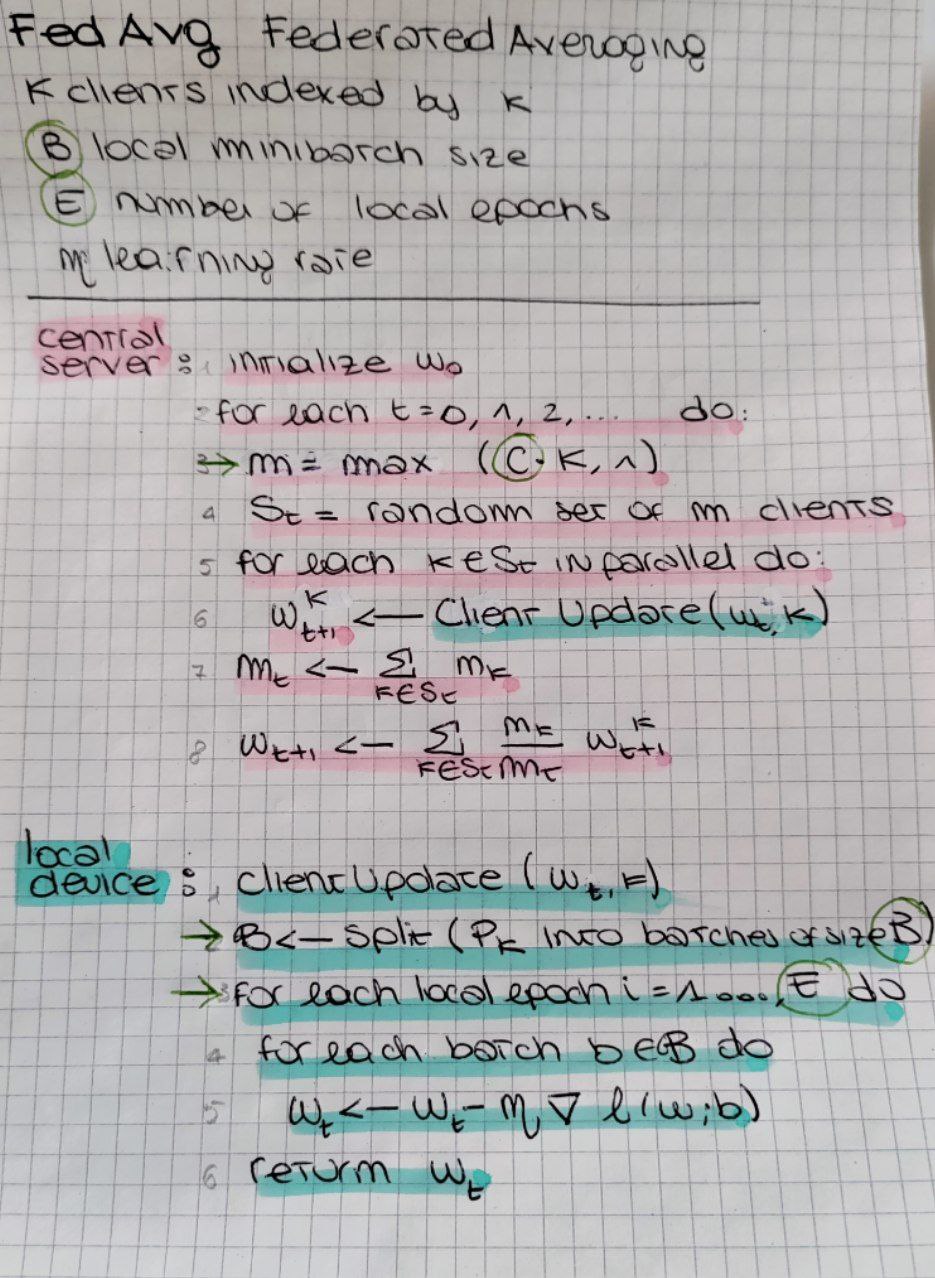 FedAvg Federated Averaging
K clients indexed by k
B local minibatch size
E number of local epochs
η learning rate
central
server : 1 initialize w₀
2 for each t = 0, 1, 2, ... do:
3 → m = max (C · K, 1)
4 Sₜ = random set of m clients
5 for each k ∈ Sₜ in parallel do:
6 wₜ₊₁ᵏ ← Client Update (wₜ, k)
7 mₜ ← Σ_{k∈Sₜ} mₖ
8 wₜ₊₁ ← Σ_{k∈Sₜ} mₖ/mₜ wₜ₊₁ᵏ
local
device : 1 client Update (wₜ, k)
→ B ← split (Pₖ into batches of size B)
→ 3 for each local epoch i = 1 ..., E do
4 for each batch b ∈ B do
5 wₜ ← wₜ - η ∇ l(w; b)
6 return wₜ